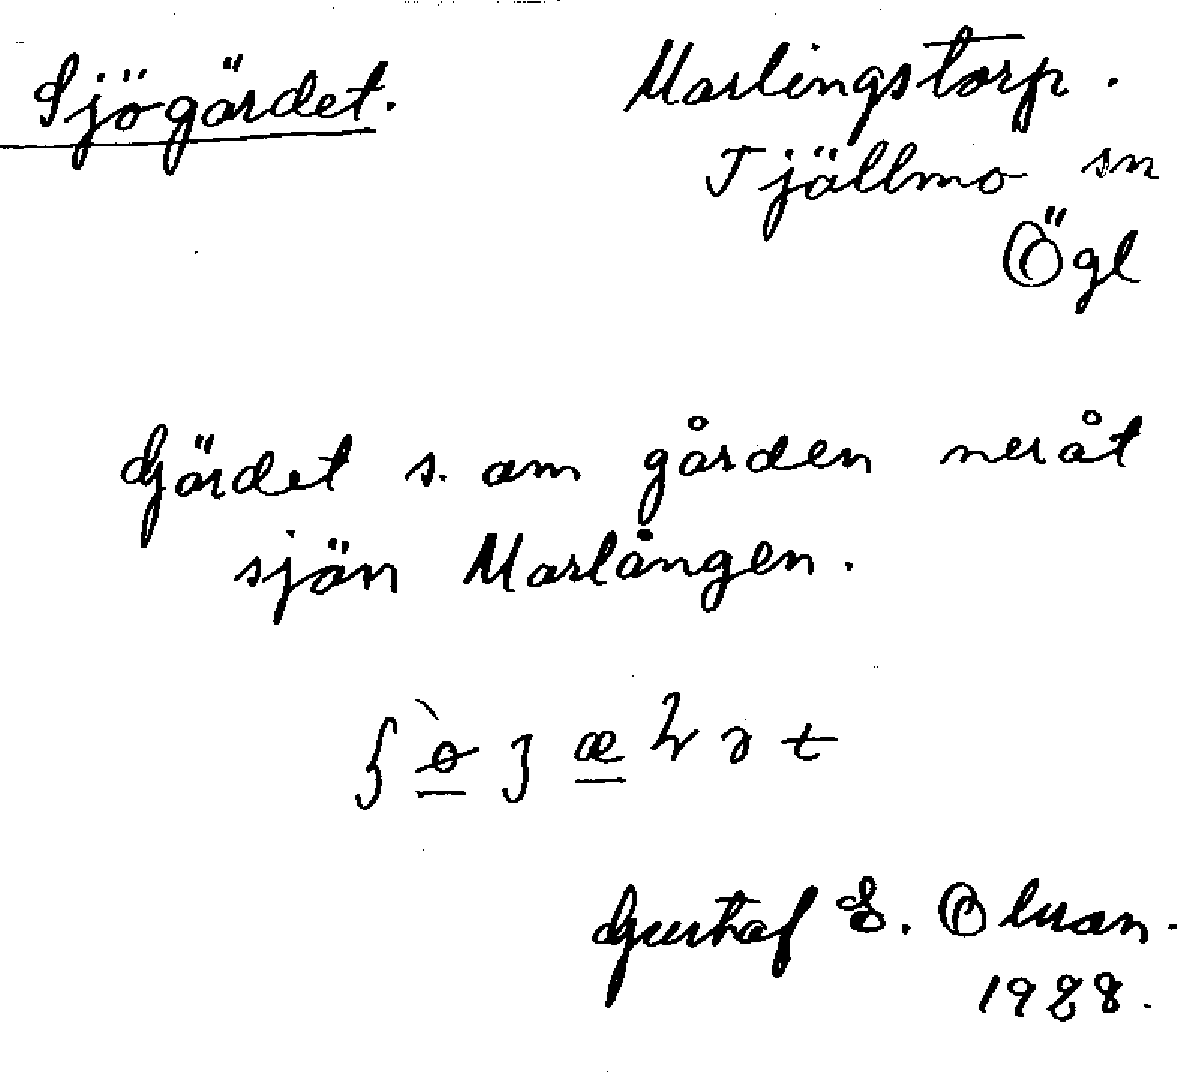 Sjögärdet.
Marlingstorp.
Tjällmo sn
Ögl
Gärdet s. om gården neråt
sjön Marlången.
Gustaf E. Olsson.
1928.